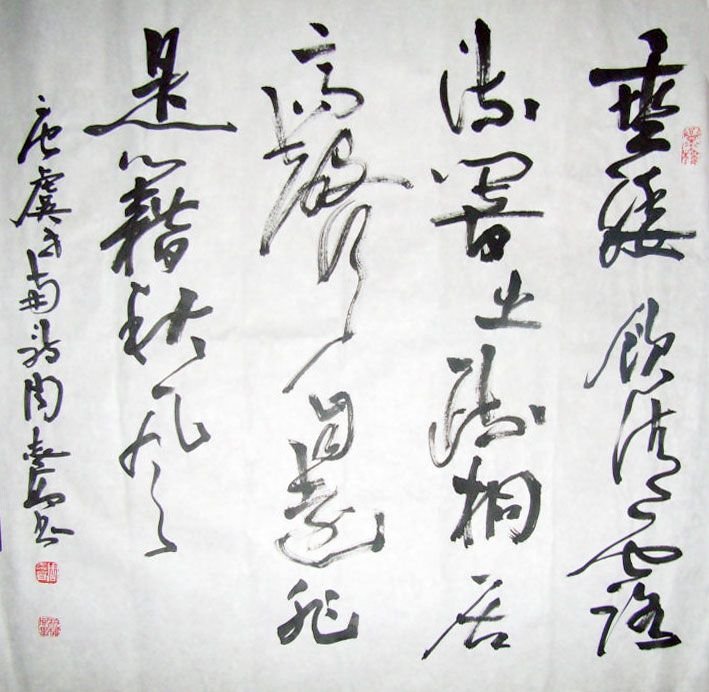 垂緌飲清露
流響出疏桐居
高聲自遠非
是籍秋風
唐虞世南詩周書